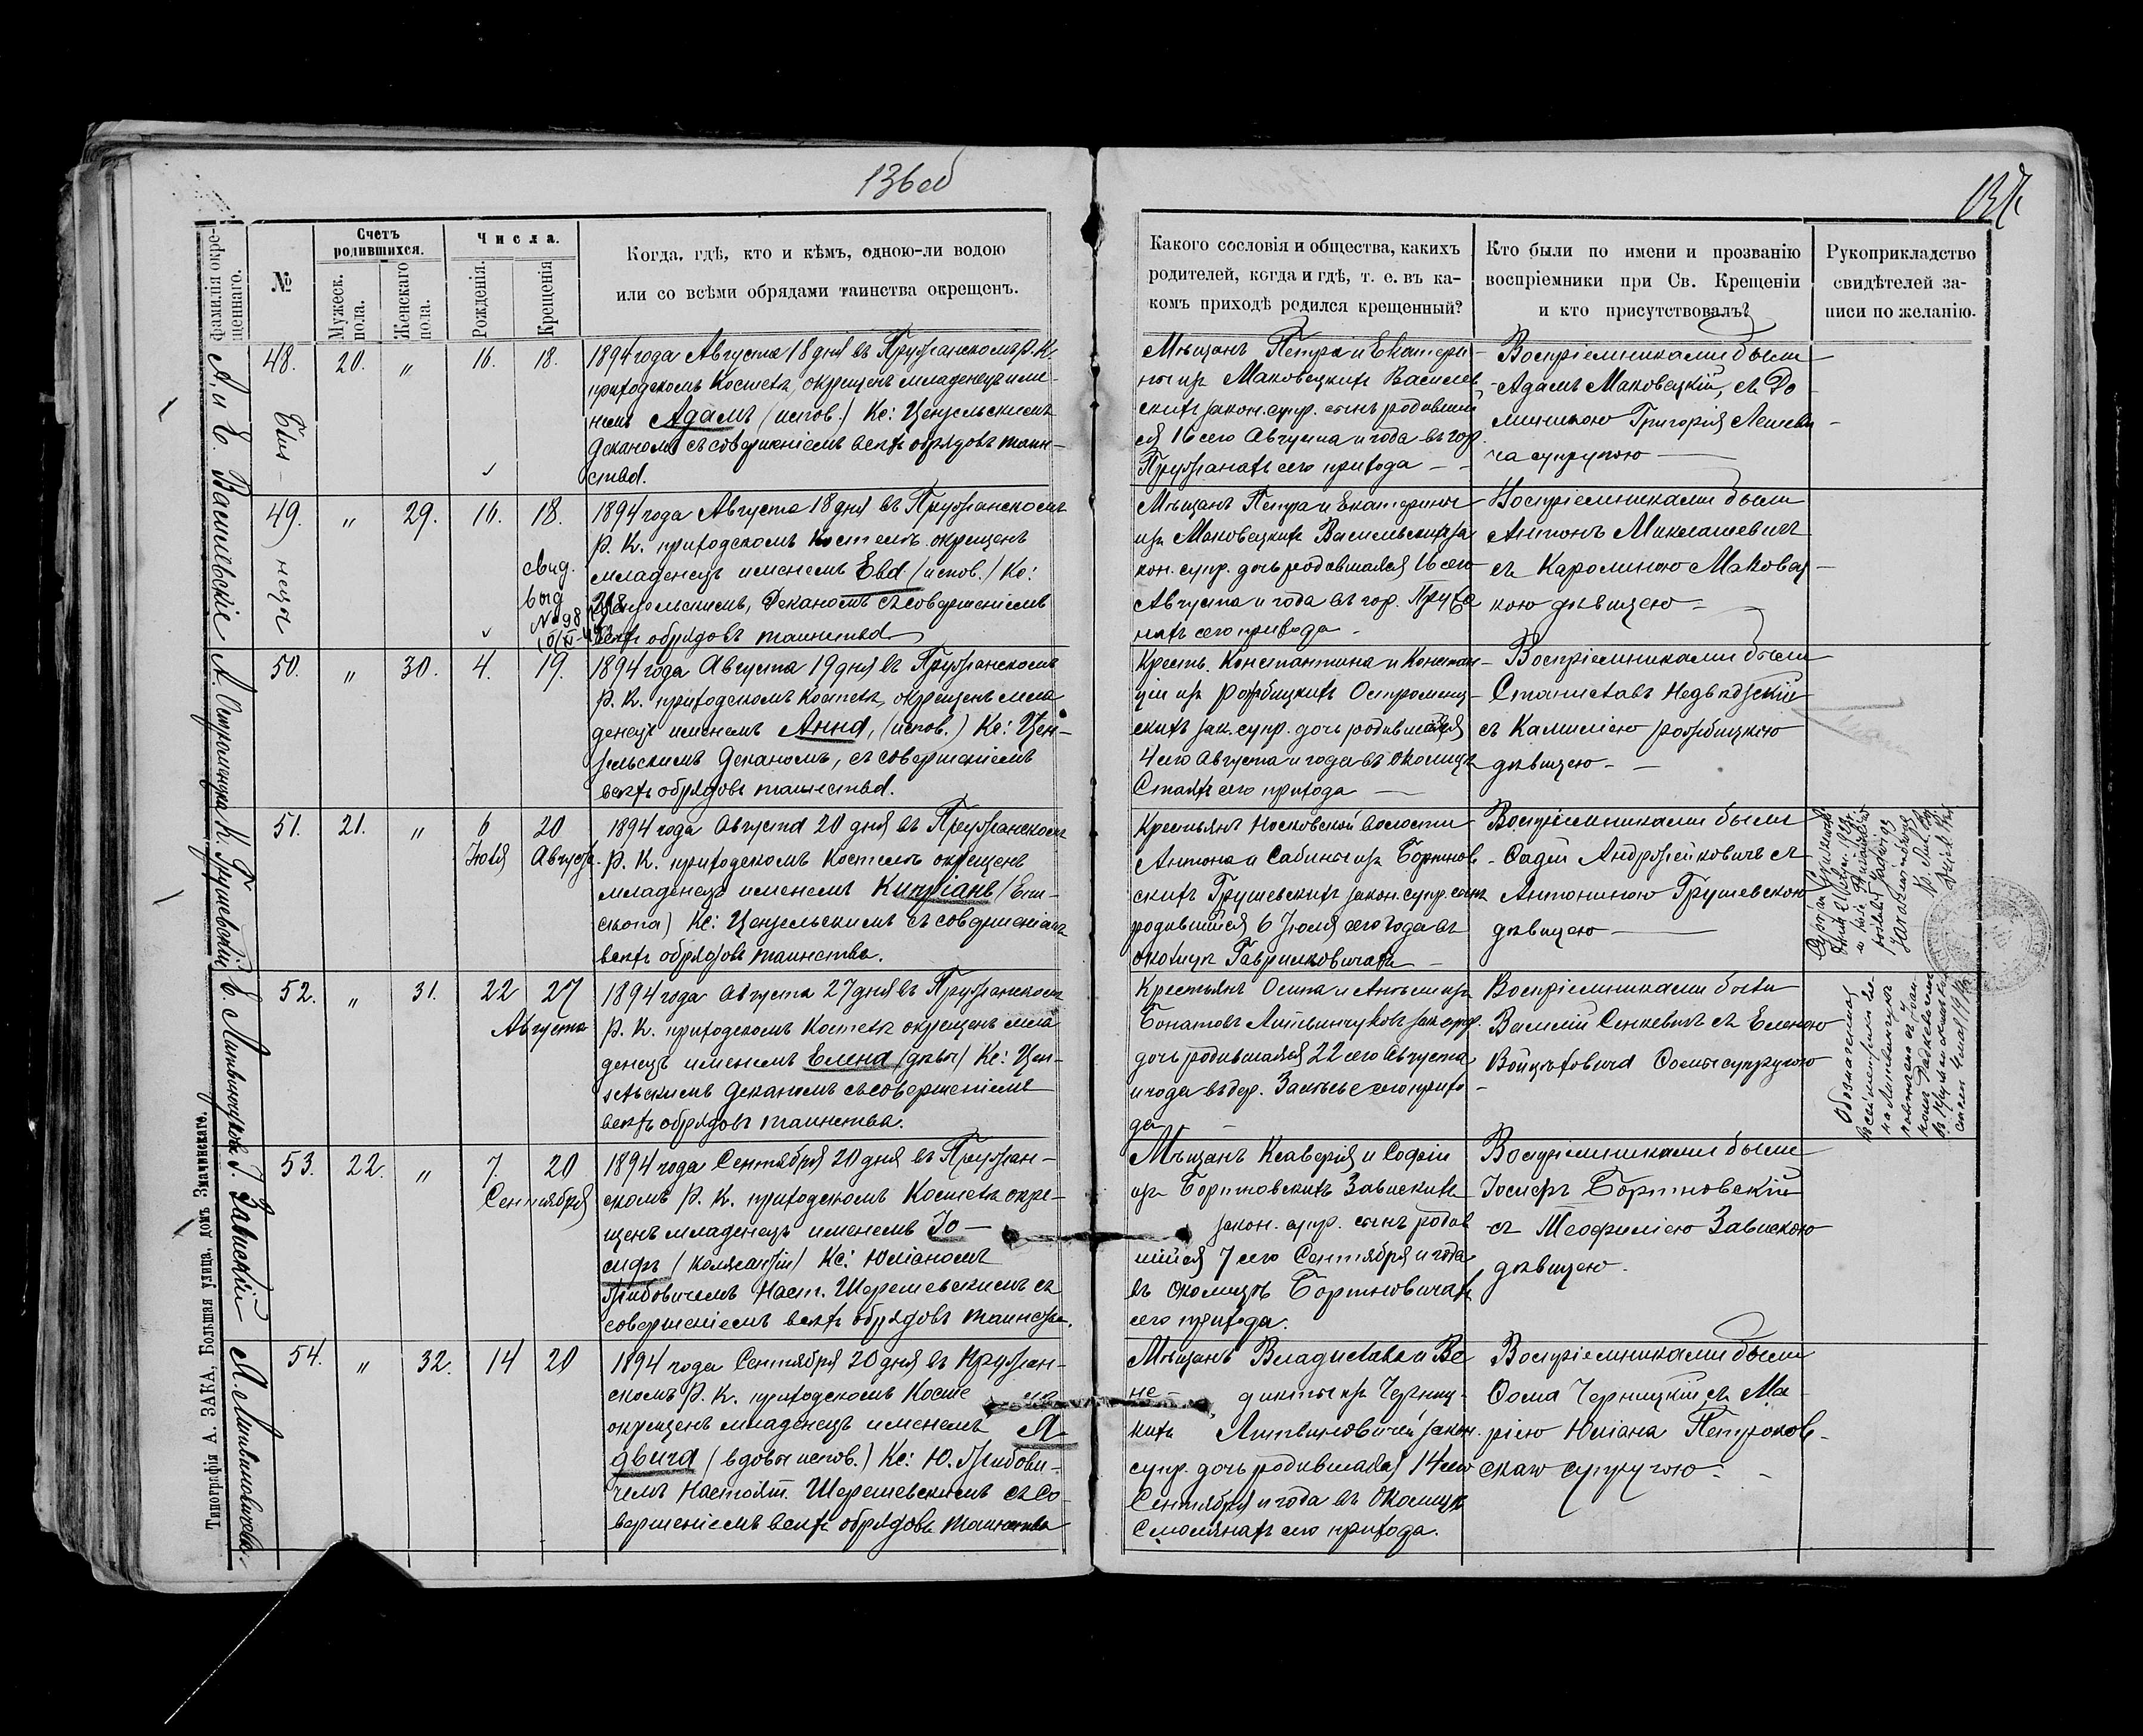 136 об
137.
Фамилія окре-
щеннаго.
№
Счетъ
родившихся.
Мужеск.
пола.
Женскаго
пола.
Числа.
Рожденія.
Крещенія
Когда, гдѣ, кто и кѣмъ, одною-ли водою
или со всѣми обрядами таинства окрещенъ.
Какого сословія и общества, какихъ
родителей, когда и гдѣ, т. е. въ ка-
комъ приходѣ родился крещенный?
Кто были по имени и прозванію
воспріемники при Св. Крещеніи
и кто присутствовалъ?
Рукоприкладство
свидѣтелей за-
писи по желанію.
А. и Е. Васильевскіе
48.
20.
"
16.
18.
1894 года Августа 18 дня въ Пружанскомъ Р. К.
приходскомъ Костелѣ, окрещенъ младенецъ име-
немъ Адамъ (испов.) Кс: Цензельскимъ
Деканомъ съ совершеніемъ всѣхъ обрядовъ таин-
ства.
Мѣщанъ Петра и Екатери-
ны изъ Маковецкихъ Василев-
скихъ закон. супр. сынъ родивший
ся 16 сего Августа и года въ гор.
Пружанахъ сего прихода
Воспріемниками были
Адамъ Маковецкій, съ До-
миникою Григорія Лешеви-
ча супругою
Близ-
нецы
49.
"
29.
16.
18.
свид.
выд
№ 98
1894 года Августа 18 дня въ Пружанскомъ
Р. К. приходскомъ Костелѣ окрещенъ
младенецъ именемъ Ева (испов.) Кс:
Цензельскимъ, Деканомъ съ совершеніемъ
всѣхъ обрядовъ таинства
Мѣщанъ Петра и Екатерины
изъ Маковецкихъ Васильевскихъ за
кон. супр. дочь родившаяся 16 сего
Августа и года въ гор. Пружа
нахъ сего прихода.
Воспріемниками были
Антонъ Миклашевичъ
съ Каролиною Маковец-
кою дѣвицею
А. Остромецка
50.
"
30.
4.
19.
1894 года Августа 19 дня въ Пружанскомъ
Р. К. приходскомъ Костелѣ, окрещенъ мла
денецъ именемъ Анна, (испов.) Кс: Цен-
зельскимъ Деканомъ, съ совершеніемъ
всѣхъ обрядовъ таинства.
Крестъ. Константина и Констан-
ціи изъ Рожбицкихъ Остромец-
скихъ зак. супр. дочь родившаяся
4 сего Августа и года въ околицѣ
сего прихода
Воспріемниками были
Станиславъ Недведзскій
съ Камиліею Рожбицкою
дѣвицею
К. Грушевскій
51.
21.
"
6
Іюля
20
Августа.
1894 года Августа 20 дня въ Пружанскомъ
Р. К. приходскомъ Костелѣ окрещенъ
младенецъ именемъ Кипріанъ (Епи-
скопа) Кс: Цензельскимъ съ совершеніемъ
всѣхъ обрядовъ таинства.
Крестьянъ Носковской волости
Антона и Сабины изъ Бортнов-
скихъ Грушевскихъ закон. супр. сынъ
родившійся 6 Іюля сего года въ
околицѣ Гавриловичахъ
Воспріемниками были
Фадей Андрожейковичъ съ
Антониною Грушевскою
дѣвицею
Е. Литвинчукова
52.
"
31.
22
27
Августа
1894 года Августа 27 дня въ Пружанскомъ
Р. К. приходскомъ Костелѣ окрещенъ мла
денецъ именемъ Елена (дѣвы) Кс: Цен-
зельскимъ Деканомъ съ совершеніемъ
всѣхъ обрядовъ таинства.
Крестьянъ Осипа и Антонины изъ
Бонатовъ Литвинчуковъ зак. супр.
дочь родившаяся 22 сего Августа
и года въ дер. Залѣсье сего прихо-
да
Воспріемниками были
Василій Сенкевичъ съ Еленою
Войцѣховича Фомы супругою
І. Завискій
53.
22.
"
7
20
Сентября
1894 года Сентября 20 дня въ Пружан-
скомъ Р. К. приходскомъ Костелѣ окре-
щенъ младенецъ именемъ Іо-
сифъ (Калясантій) Кс: Юліаномъ
Грибовичемъ Наст. Шерешевскимъ съ
совершеніемъ всѣхъ обрядовъ таинства.
Мѣщанъ Ксаверія и Софіи
изъ Бортновскихъ Завискихъ
закон. супр. сынъ родив
шійся 7 сего Сентября и года
въ околицѣ Бортновичахъ
сего прихода.
Воспріемниками были
Іосифъ Бортновскій
съ Теофиліею Завискою
дѣвицею.
Я. Литвиновичева
54.
"
32.
14
20
1894 года Сентября 20 дня въ Пружан-
скомъ Р. К. приходскомъ Косте лѣ
окрещенъ младенецъ именемъ Я-
двига (вдовы испов.) Кс: Ю. Грибови-
чемъ Настоят. Шерешевскимъ съ со-
вершеніемъ всѣхъ обрядовъ таинства
Мѣщанъ Владислава и Ве
не- дикты изъ Черниц-
кихъ Литвиновичей закон.
супр. дочь родившаяся 14 сего
Сентября и года въ околицѣ
Смолянахъ сего прихода.
Воспріемниками были
Фома Черницкій съ Ма-
ріею Юліана Петуховск-
скаго супругою
Типографія А. ЗАКА, Большая улица, домъ Значинскаго.